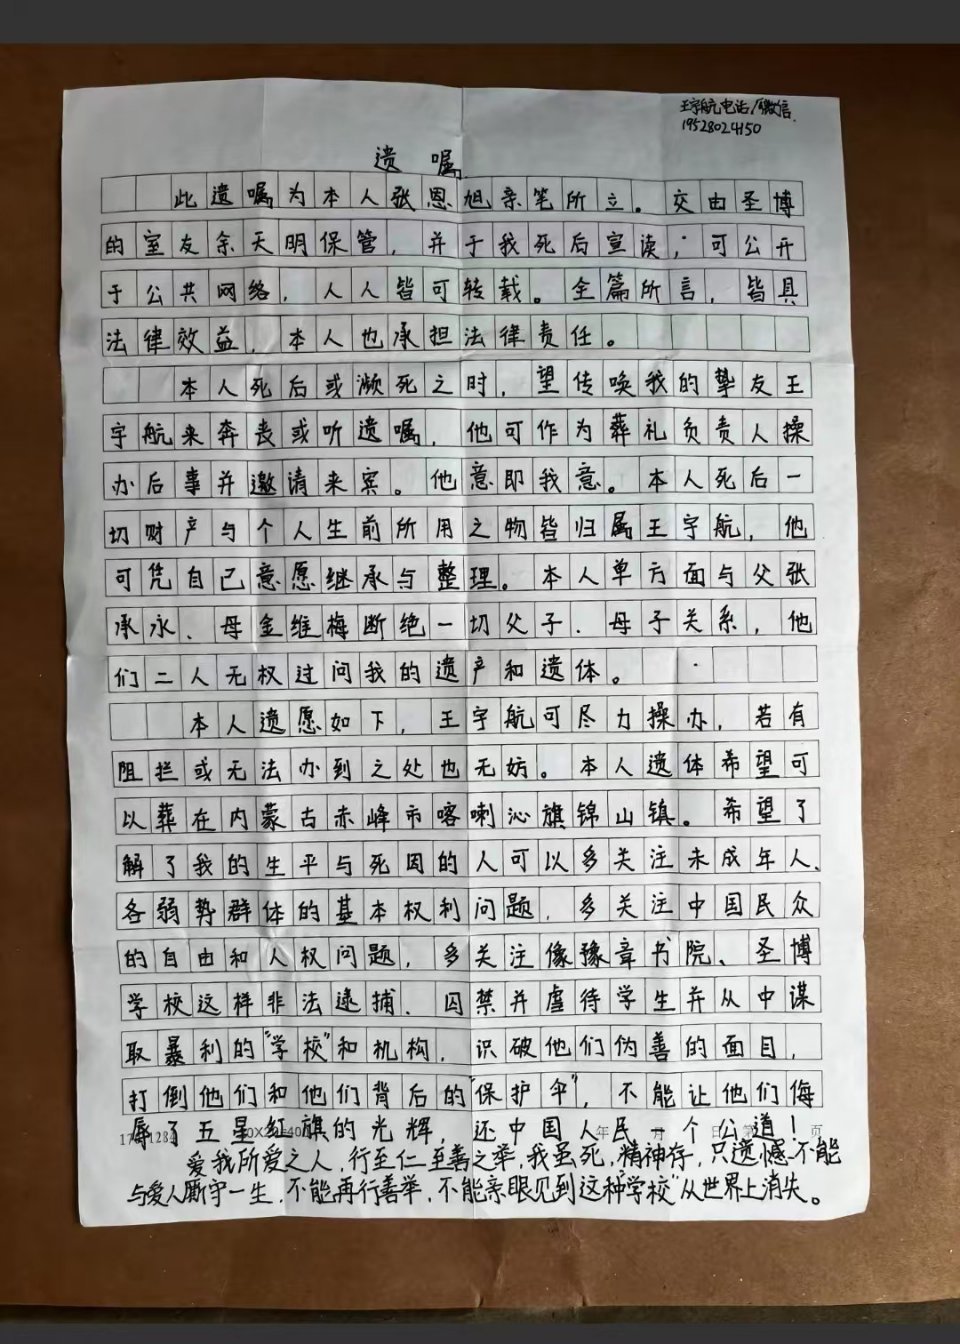 王宇航电话/微信
19528024150
遗嘱
此遗嘱为本人张恩旭亲笔所立。交由圣博
的室友余天明保管，并于我死后宣读；可公开
于公共网络，人人皆可转载。全篇所言，皆具
法律效益，本人也承担法律责任。
本人死后或濒死之时，望传唤我的挚友王
宇航来奔丧或听遗嘱，他可作为葬礼负责人操
办后事并邀请来宾。他意即我意。本人死后一
切财产与个人生前所用之物皆归属王宇航，他
可凭自己意愿继承与整理。本人单方面与父张
承永、母金维梅断绝一切父子、母子关系，他
们二人无权过问我的遗产和遗体。
本人遗愿如下，王宇航可尽力操办，若有
阻拦或无法办到之处也无妨。本人遗体希望可
以葬在内蒙古赤峰市喀喇沁旗锦山镇。希望了
解了我的生平与死因的人可以多关注未成年人、
各弱势群体的基本权利问题，多关注中国民众
的自由和人权问题，多关注像豫章书院、圣博
学校这样非法逮捕、囚禁并虐待学生并从中谋
取暴利的“学校”和机构，识破他们伪善的面目，
打倒他们和他们背后的“保护伞”，不能让他们侮
辱了五星红旗的光辉，还中国人民一个公道！
年 月 日 第 页
爱我所爱之人，行至仁至善之举，我虽死，精神存，只遗憾不能
与爱人厮守一生，不能再行善举，不能亲眼见到这种“学校”从世界上消失。